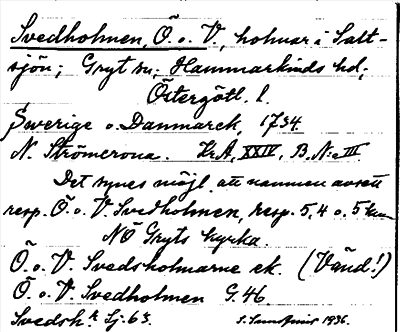 Svedholmen, Ö. o. V., holmar i Salt-
sjön; Gryt sn; Hammarkinds hd,
Östergötl. l.
Sverige o. Danmarck, 1734.
N. Strömcrona. Kr.A, XXIV, B. N:o III.
Det synes möjl. att namnen avsett
resp. Ö. o. V. Svedholmen, resp. 5,4 o. 5 km
NÖ Gryts kyrka.
Ö. o. V. Svedsholmarne ek. (Vänd!)
Ö. o. V. Svedholmen G. 46.
Svedsh. Sj. 63. 1936.